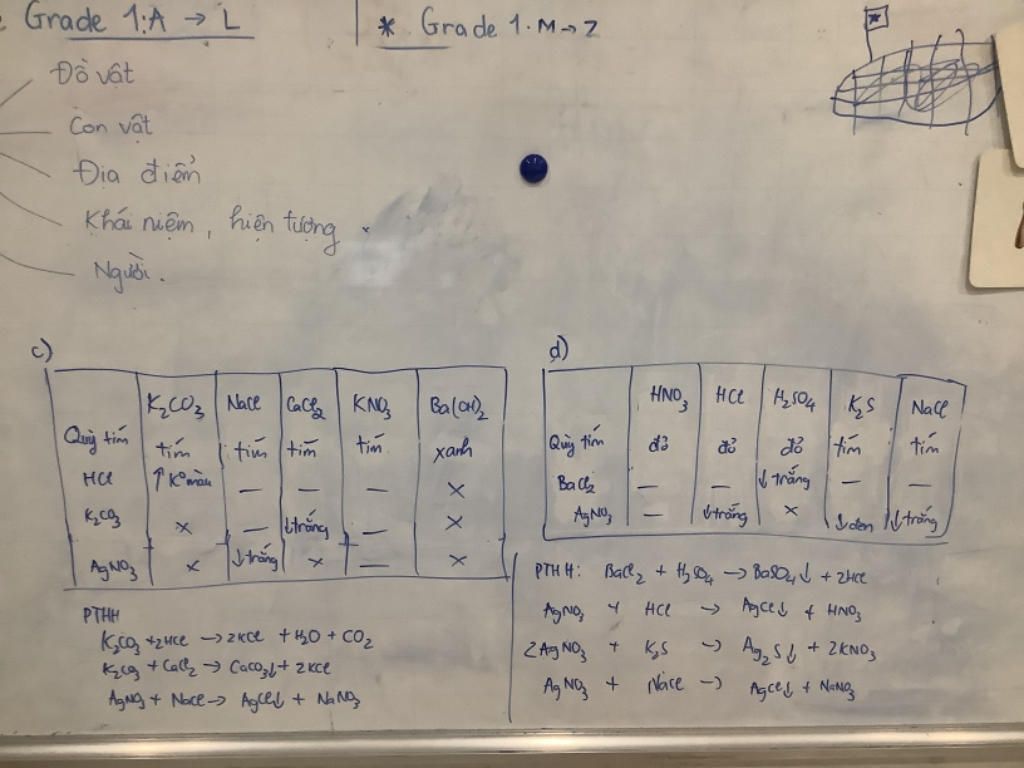 Grade 1: A → L
* Grade 1. M → Z
Đồ vật
Con vật
Địa điểm
Khái niệm, hiện tượng
Người.
c)
K₂CO₃ NaCl CaCl₂ KNO₃ Ba(OH)₂
Quỳ tím tím tím tím tím xanh
HCl ↑ K° màu — — — ×
K₂CO₃ × — ↓trắng — ×
AgNO₃ × ↓trắng × — ×
PTHH
K₂CO₃ + 2HCl → 2KCl + H₂O + CO₂
K₂CO₃ + CaCl₂ → CaCO₃↓ + 2KCl
AgNO₃ + NaCl → AgCl↓ + NaNO₃
d)
HNO₃ HCl H₂SO₄ K₂S NaCl
Quỳ tím đỏ đỏ đỏ tím tím
BaCl₂ — — ↓trắng — —
AgNO₃ — ↓trắng × ↓đen ↓trắng
PTHH: BaCl₂ + H₂SO₄ → BaSO₄↓ + 2HCl
AgNO₃ + HCl → AgCl↓ + HNO₃
2AgNO₃ + K₂S → Ag₂S↓ + 2KNO₃
AgNO₃ + NaCl → AgCl↓ + NaNO₃